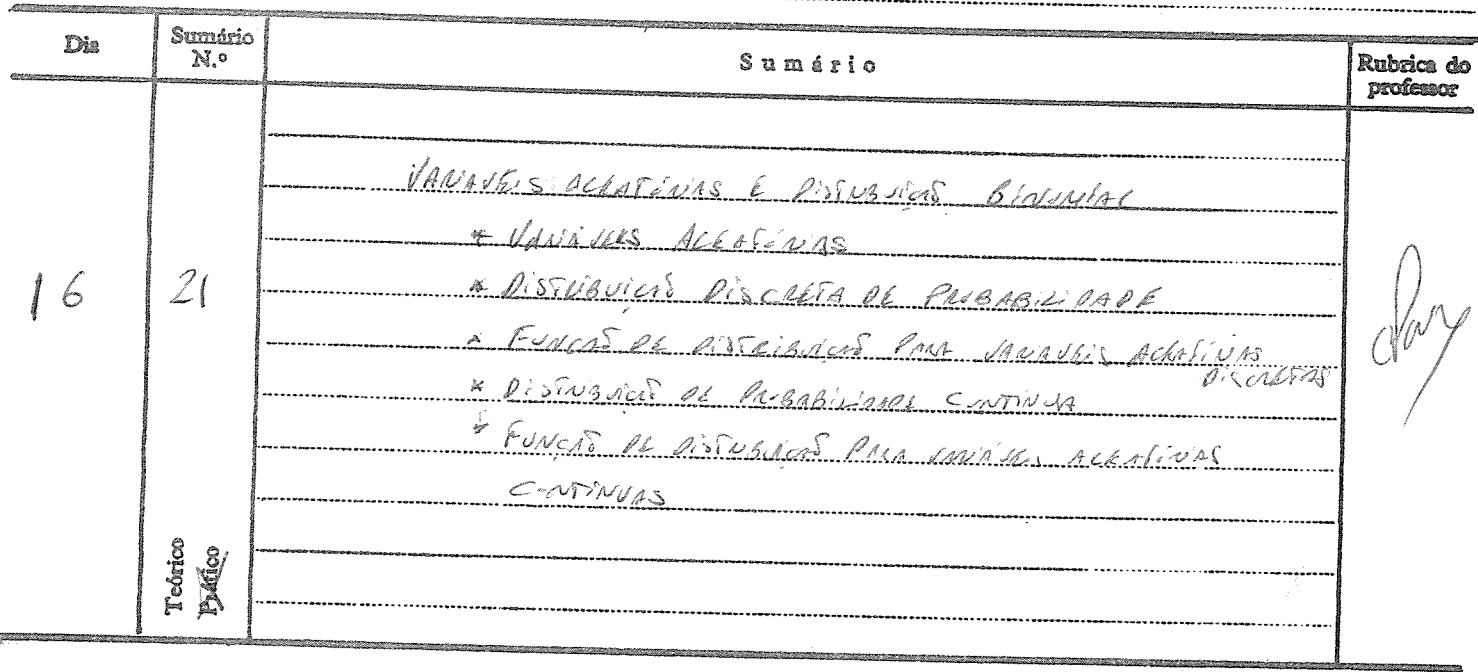 Dia
Sumário N.º
Sumário
Rubrica do professor
16
21
VARIAVEIS ALEATÓRIAS E DISTRIBUIÇÃO BINOMIAL
* VARIÁVEIS ALEATÓRIAS
* DISTRIBUIÇÃO DISCRETA DE PROBABILIDADE
* FUNÇÃO DE DISTRIBUIÇÃO PARA VARIAVEIS ALEATÓRIAS DISCRETAS
* DISTRIBUIÇÃO DE PROBABILIDADE CONTINUA
* FUNÇÃO DE DISTRIBUIÇÃO PARA VARIÁVEIS ALEATÓRIAS
CONTÍNUAS
Teórico
Prático